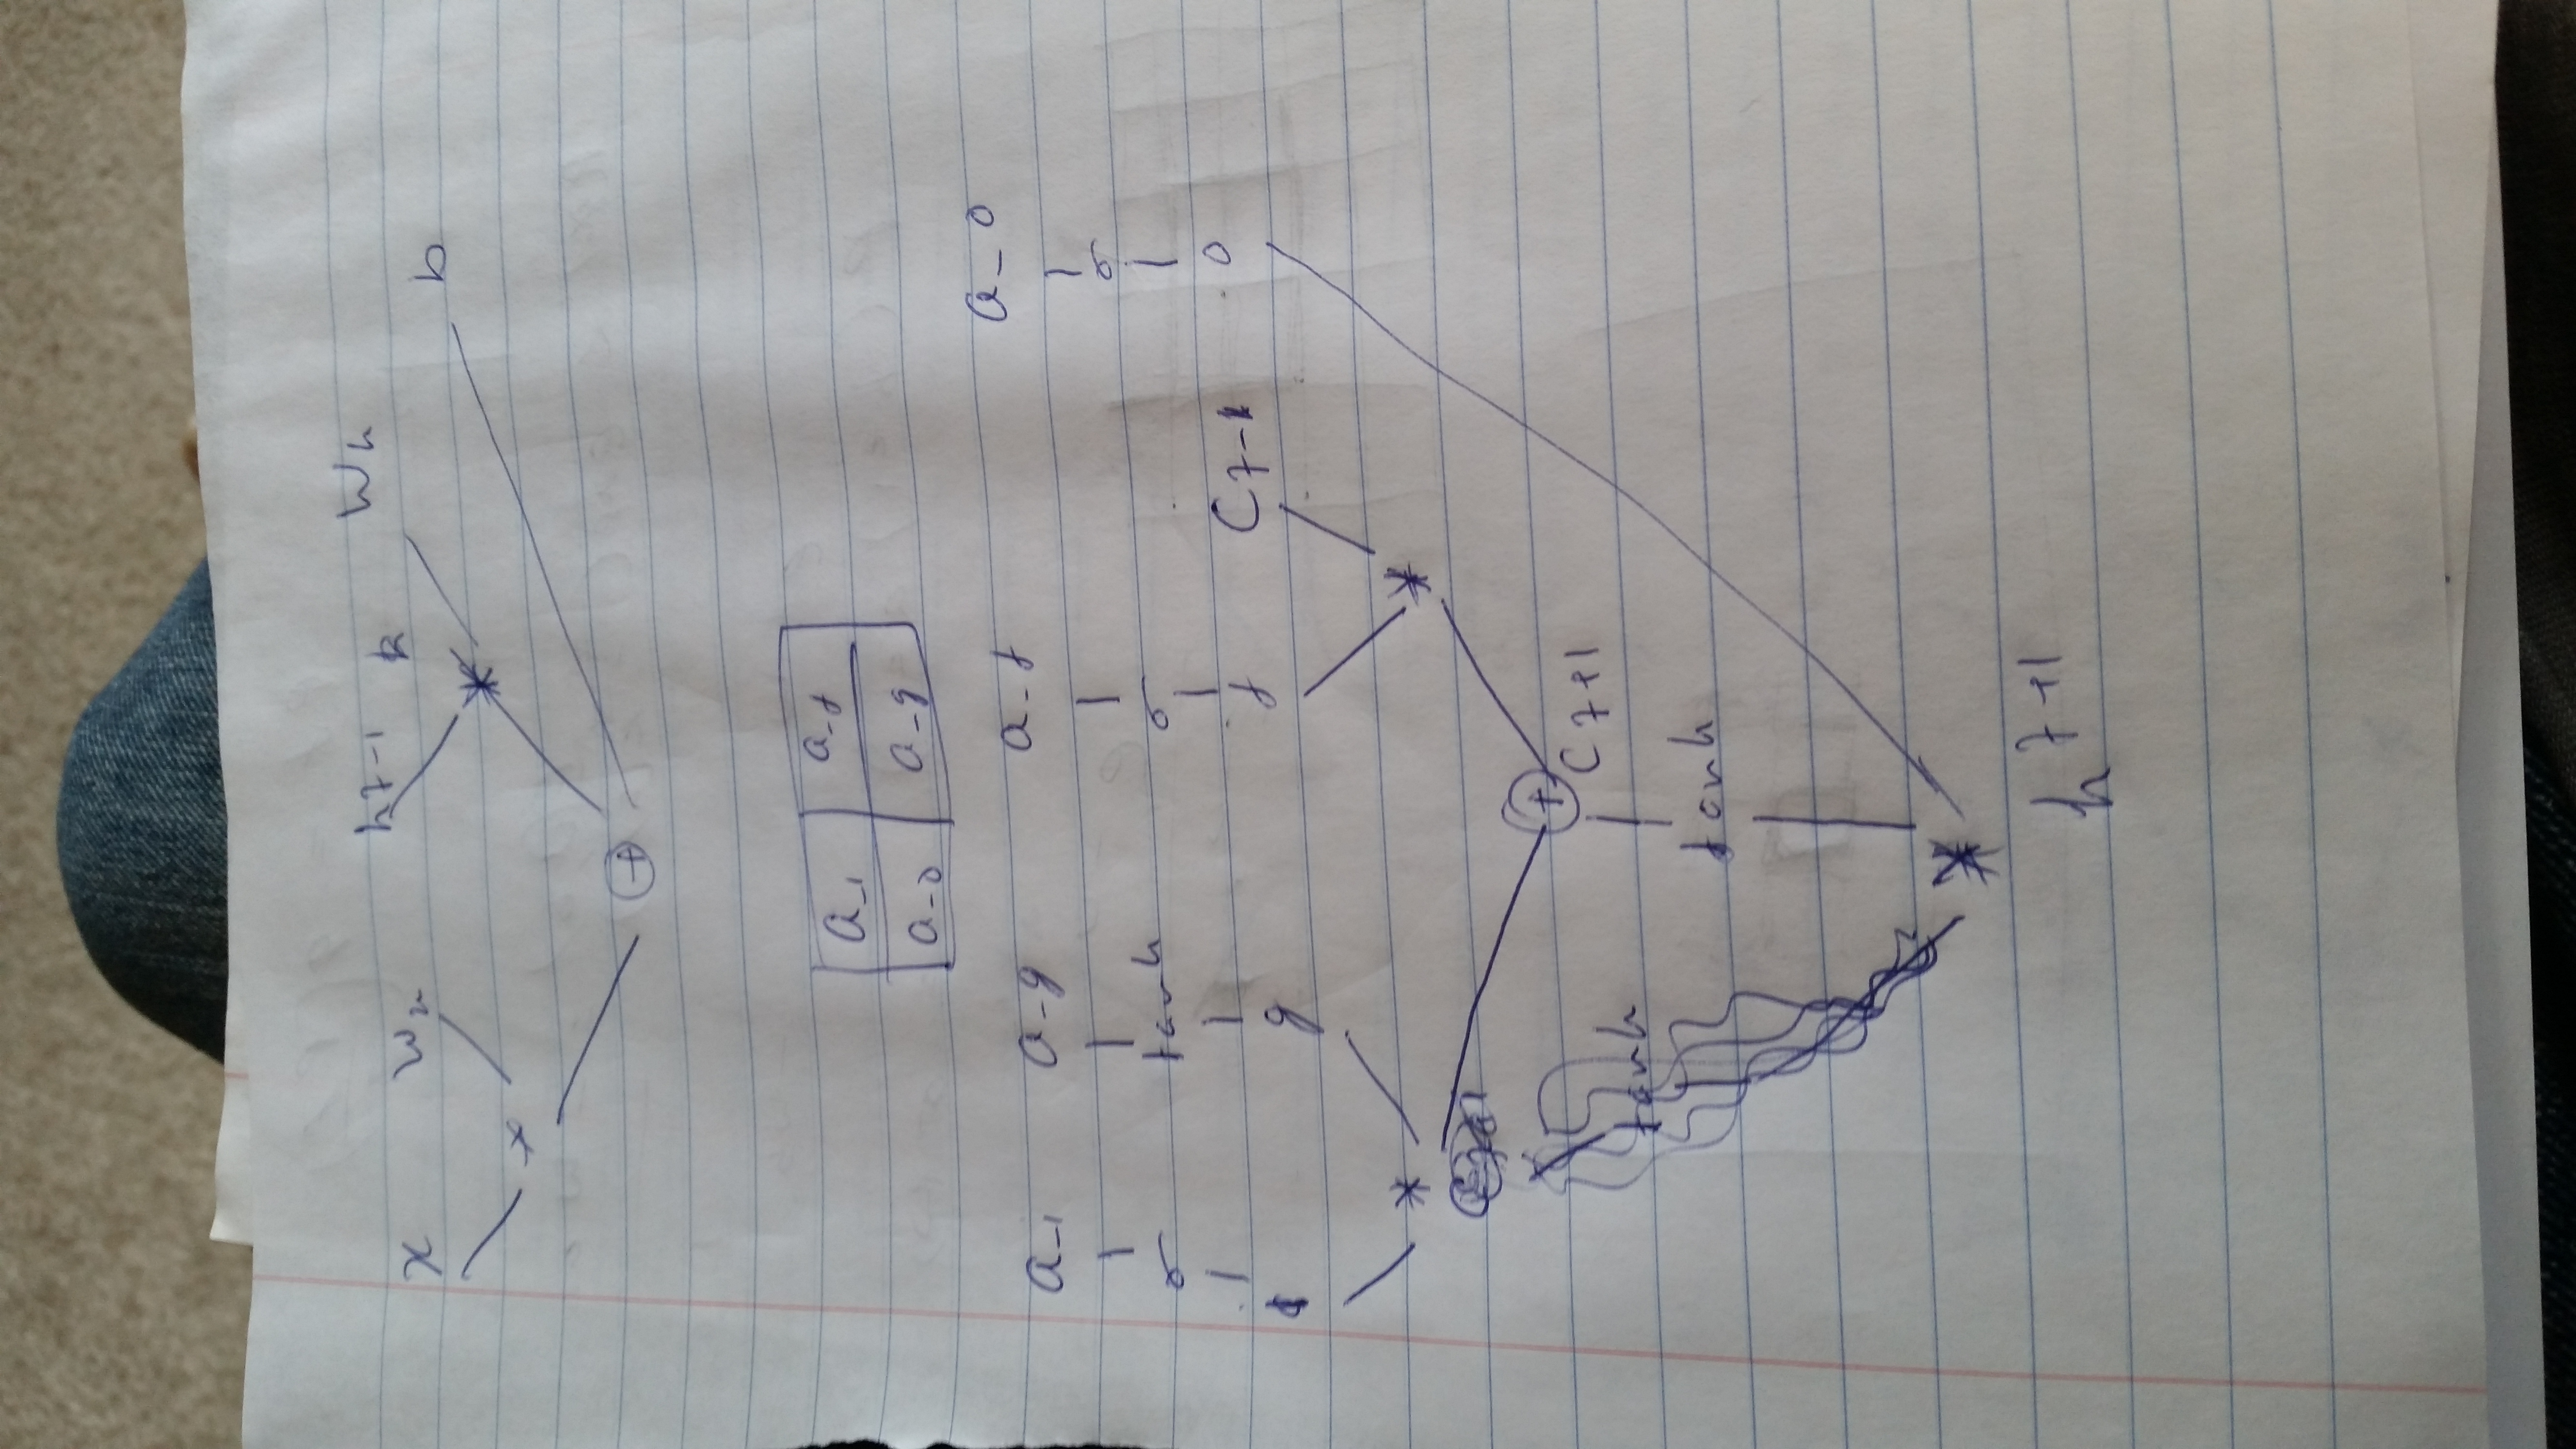 x Wx h7-1 Wh
b
* *
+
a_i a_f
a_o a_g
a_i a_g a_f a_o
σ tanh σ σ
i g f C7-1 o
* *
+
C7+1
tanh
tanh
*
h7+1